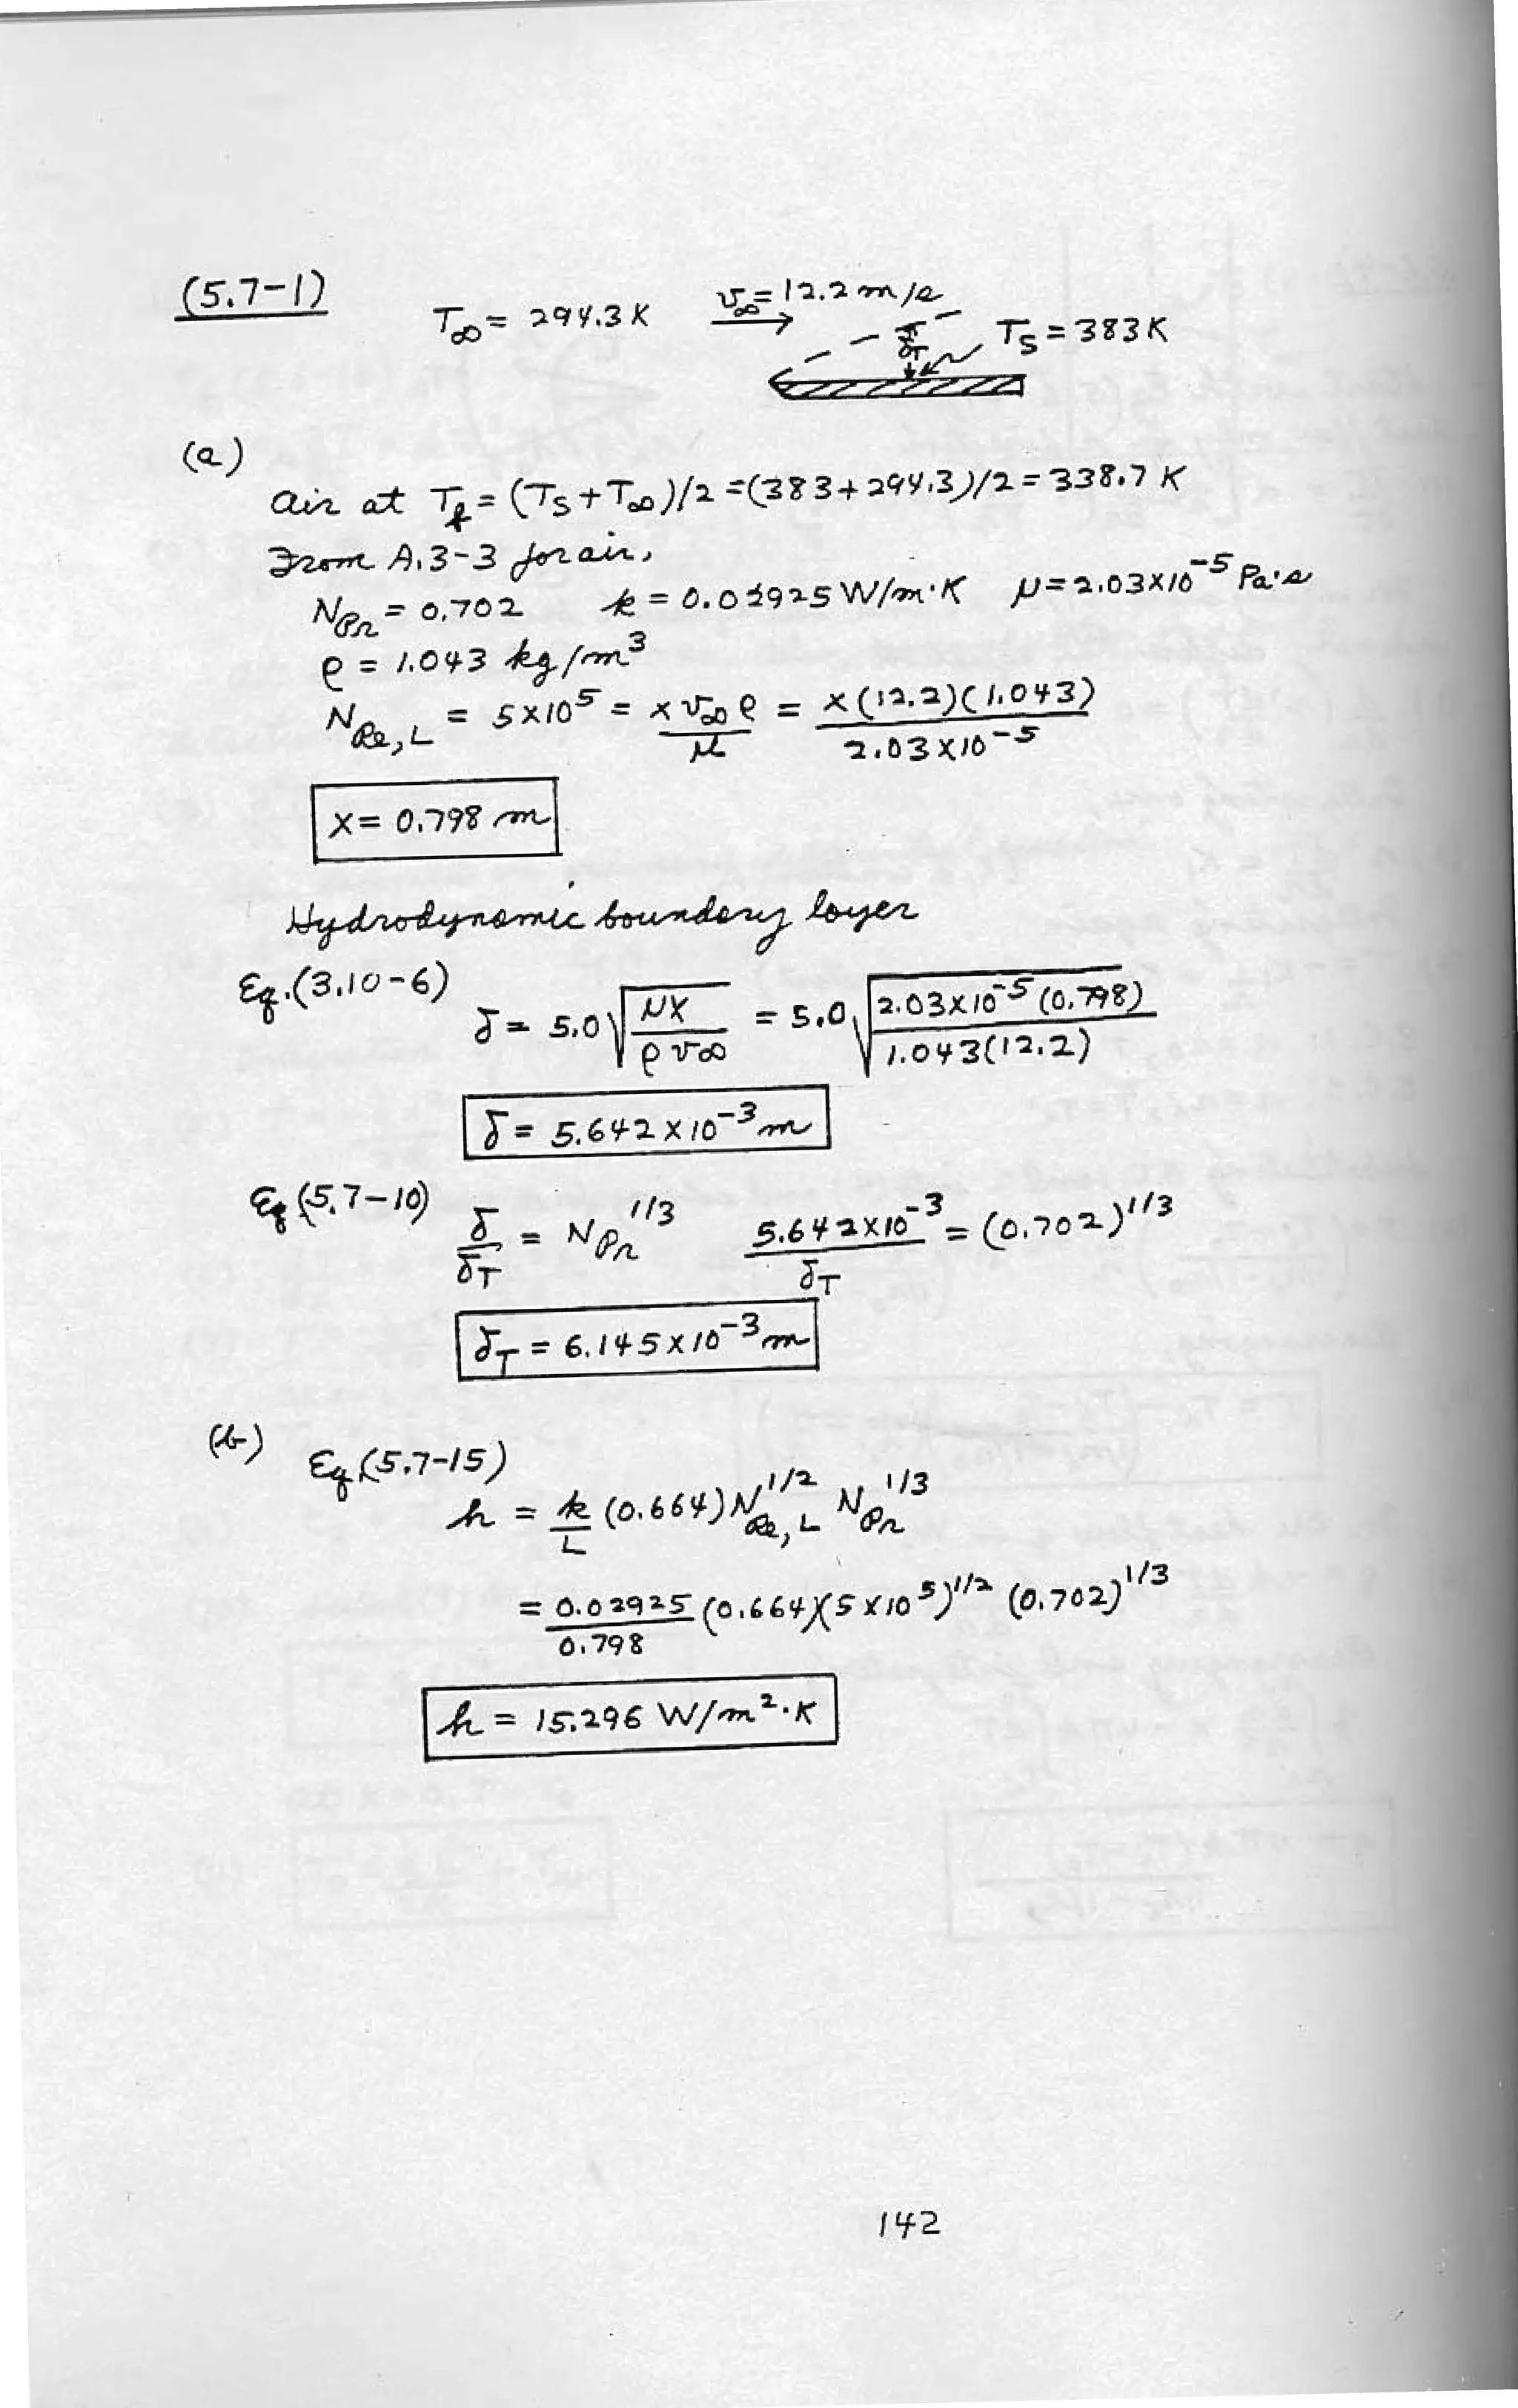 (5.7-1)
T∞ = 294.3 K v∞ = 12.2 m/s
δT TS = 383 K
(a)
Air at Tf = (TS + T∞)/2 = (383 + 294.3)/2 = 338.7 K
From A.3-3 for air,
NPr = 0.702 k = 0.02925 W/m·K μ = 2.03×10^-5 Pa·s
ρ = 1.043 kg/m^3
NRe,L = 5×10^5 = x v∞ ρ / μ = x(12.2)(1.043) / 2.03×10^-5
x = 0.798 m
Hydrodynamic boundary layer
Eq.(3.10-6)
δ = 5.0 √(μx / ρ v∞) = 5.0 √(2.03×10^-5 (0.798) / 1.043(12.2))
δ = 5.642×10^-3 m
Eq (5.7-10) δ/δT = NPr^1/3 5.642×10^-3 / δT = (0.702)^1/3
δT = 6.145×10^-3 m
(b)
Eq (5.7-15)
h = k/L (0.664) NRe,L^1/2 NPr^1/3
= 0.02925/0.798 (0.664)(5×10^5)^1/2 (0.702)^1/3
h = 15.296 W/m^2·K
142